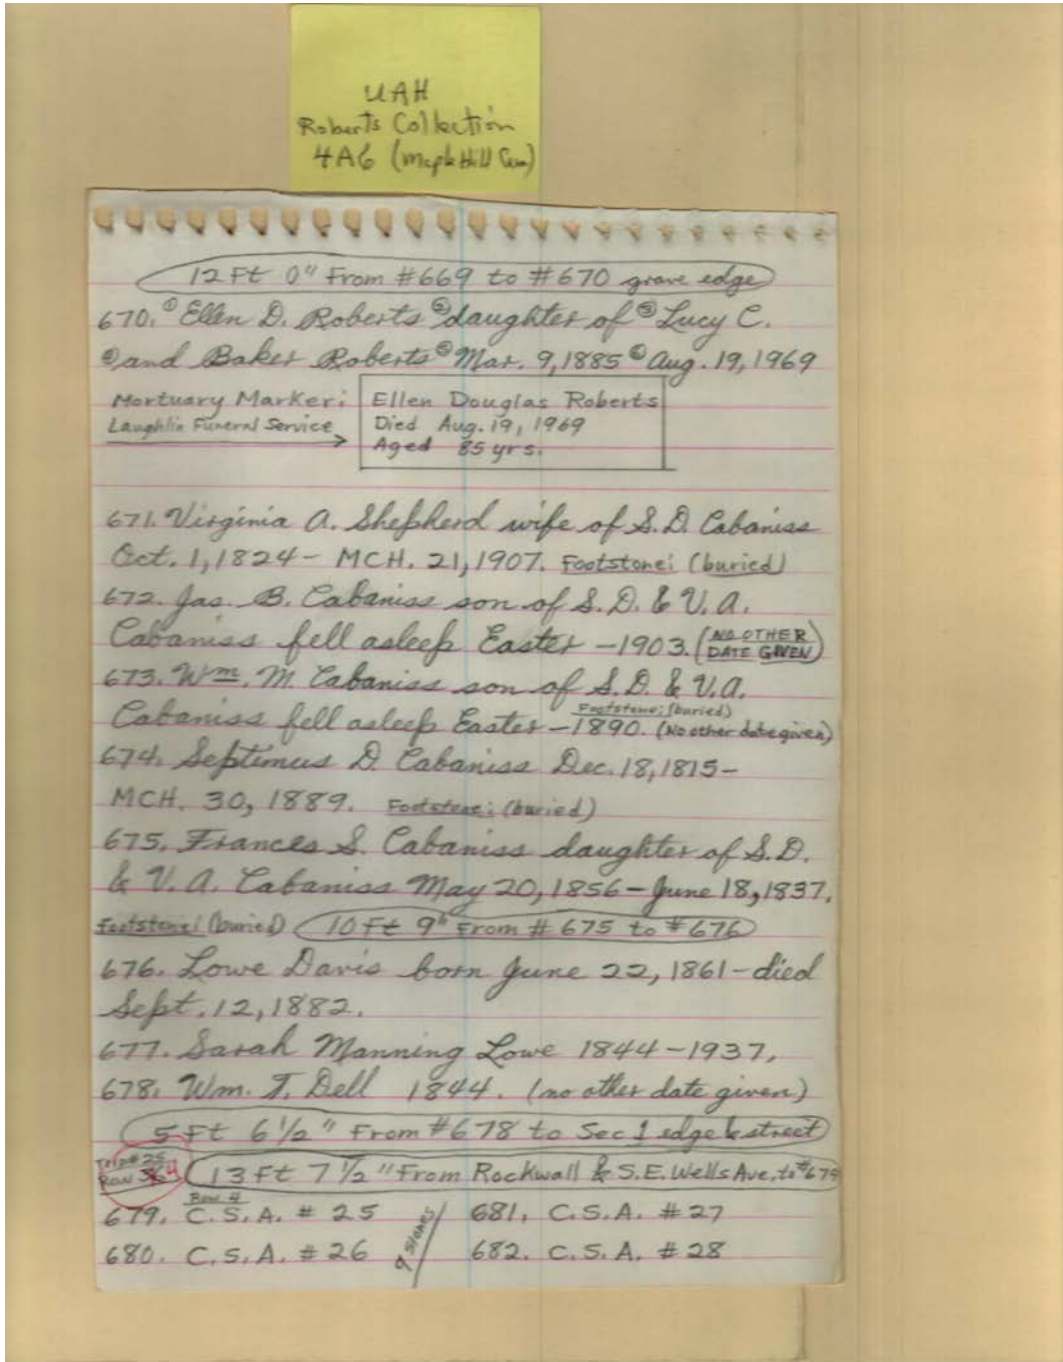 UAH
Roberts Collection
4A6 (Maple Hill Cem)
12 Ft 0" From #669 to #670 grave edge
670. ① Ellen D. Roberts ② daughter of ③ Lucy C.
④ and Baker Roberts ⑤ Mar. 9, 1885 ⑥ Aug. 19, 1969
Mortuary Marker: Ellen Douglas Roberts
Laughlin Funeral Service Died Aug. 19, 1969
Aged 85 yrs.
671. Virginia A. Shepherd wife of S.D. Cabaniss
Oct. 1, 1824 - MCH. 21, 1907. Footstone: (buried)
672. Jas. B. Cabaniss son of S.D. & V.A.
Cabaniss fell asleep Easter - 1903. (NO OTHER DATE GIVEN)
673. Wm. M. Cabaniss son of S.D. & V.A.
Footstone: (buried)
Cabaniss fell asleep Easter - 1890. (No other date given)
674. Septimus D. Cabaniss Dec. 18, 1815 -
MCH. 30, 1889. Footstone: (buried)
675. Frances S. Cabaniss daughter of S.D.
& V.A. Cabaniss May 20, 1856 - June 18, 1837.
Footstone: (buried) 10 Ft 9" From # 675 to # 676
676. Lowe Davis born June 22, 1861 - died
Sept. 12, 1882.
677. Sarah Manning Lowe 1844 - 1937.
678. Wm. T. Dell 1844. (no other date given)
5 Ft 6 1/2" From #678 to Sec 1 edge & street
Row 4
13 Ft 7 1/2" From Rockwall & S.E. Wells Ave. to #679
Row 4
679. C.S.A. # 25 681. C.S.A. # 27
9 stones
680. C.S.A. # 26 682. C.S.A. # 28